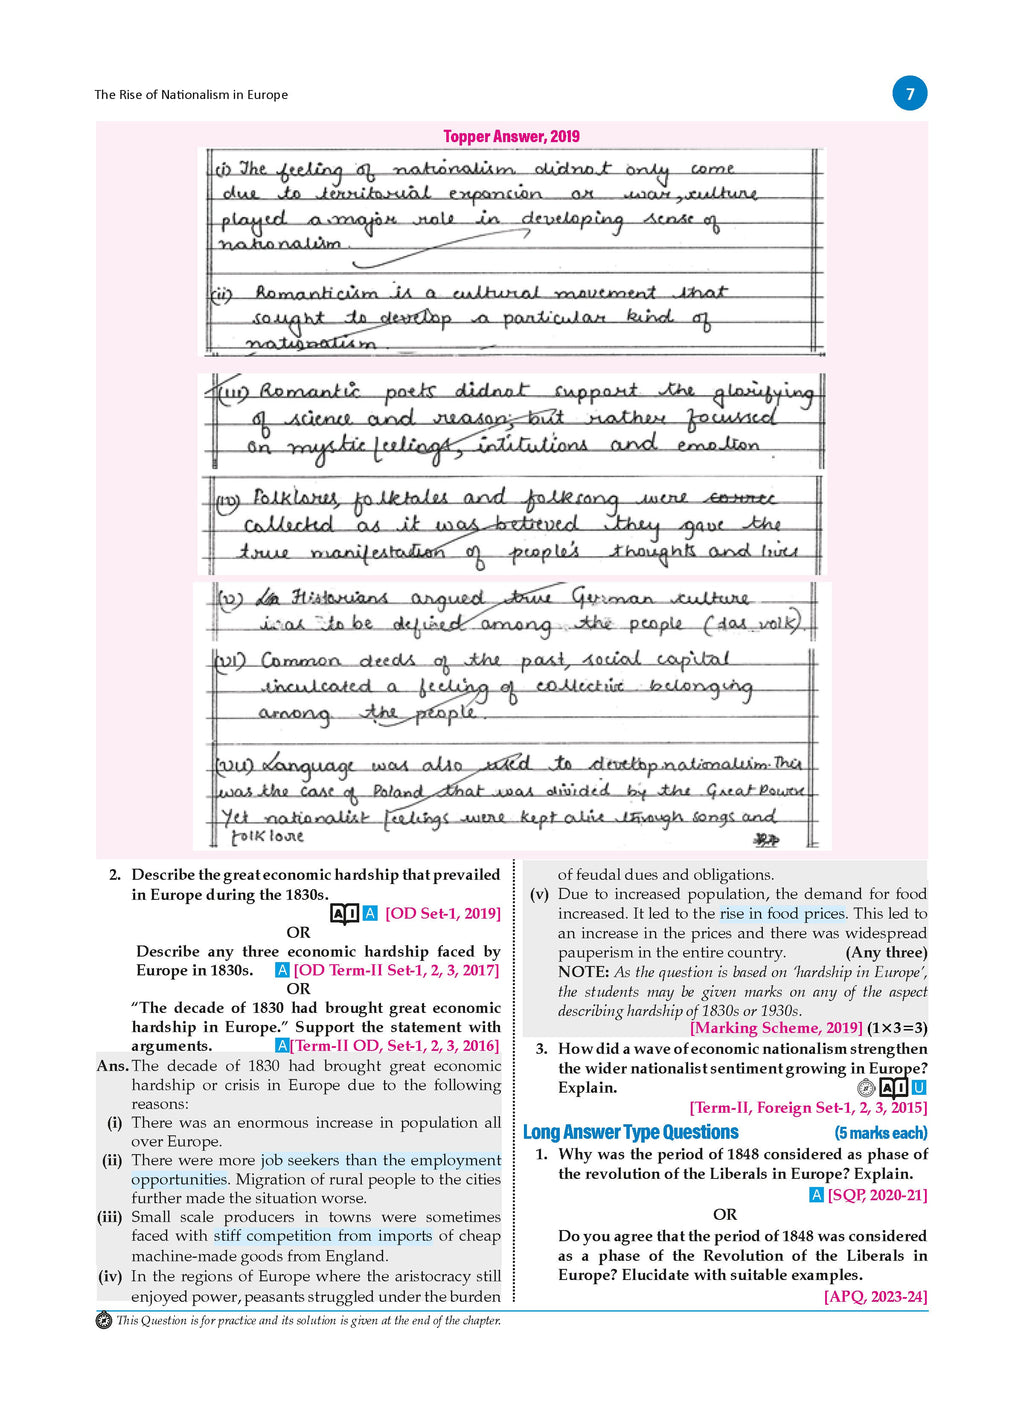 The Rise of Nationalism in Europe
7
Topper Answer, 2019
(i) The feeling of nationalism didnot only come
due to territorial expansion or war, culture
played a major role in developing sense of
nationalism.
(ii) Romanticism is a cultural movement that
sought to develop a particular kind of
nationalism.
(iii) Romantic poets didnot support the glorifying
of science and reason, but rather focussed
on mystic feelings, intitutions and emotion.
(iv) Folklores, folktales and folksong were
collected as it was believed they gave the
true manifestation of people's thoughts and lives
(v) Historians argued true German culture
was to be defined among the people (das volk).
(vi) Common deeds of the past, social capital
inculcated a feeling of collective belonging
among the people.
(vii) Language was also used to develop nationalism. This
was the case of Poland that was divided by the Great Power
Yet nationalist feelings were kept alive through songs and
folklore
2. Describe the great economic hardship that prevailed
in Europe during the 1830s.
AI A [OD Set-1, 2019]
OR
Describe any three economic hardship faced by
Europe in 1830s. A [OD Term-II Set-1, 2, 3, 2017]
OR
“The decade of 1830 had brought great economic
hardship in Europe.” Support the statement with
arguments. A [Term-II OD, Set-1, 2, 3, 2016]
Ans. The decade of 1830 had brought great economic
hardship or crisis in Europe due to the following
reasons:
(i) There was an enormous increase in population all
over Europe.
(ii) There were more job seekers than the employment
opportunities. Migration of rural people to the cities
further made the situation worse.
(iii) Small scale producers in towns were sometimes
faced with stiff competition from imports of cheap
machine-made goods from England.
(iv) In the regions of Europe where the aristocracy still
enjoyed power, peasants struggled under the burden
of feudal dues and obligations.
(v) Due to increased population, the demand for food
increased. It led to the rise in food prices. This led to
an increase in the prices and there was widespread
pauperism in the entire country. (Any three)
NOTE: As the question is based on ‘hardship in Europe’,
the students may be given marks on any of the aspect
describing hardship of 1830s or 1930s.
[Marking Scheme, 2019] (1×3=3)
3. How did a wave of economic nationalism strengthen
the wider nationalist sentiment growing in Europe?
Explain. AI U
[Term-II, Foreign Set-1, 2, 3, 2015]
Long Answer Type Questions (5 marks each)
1. Why was the period of 1848 considered as phase of
the revolution of the Liberals in Europe? Explain.
A [SQP, 2020-21]
OR
Do you agree that the period of 1848 was considered
as a phase of the Revolution of the Liberals in
Europe? Elucidate with suitable examples.
[APQ, 2023-24]
This Question is for practice and its solution is given at the end of the chapter.